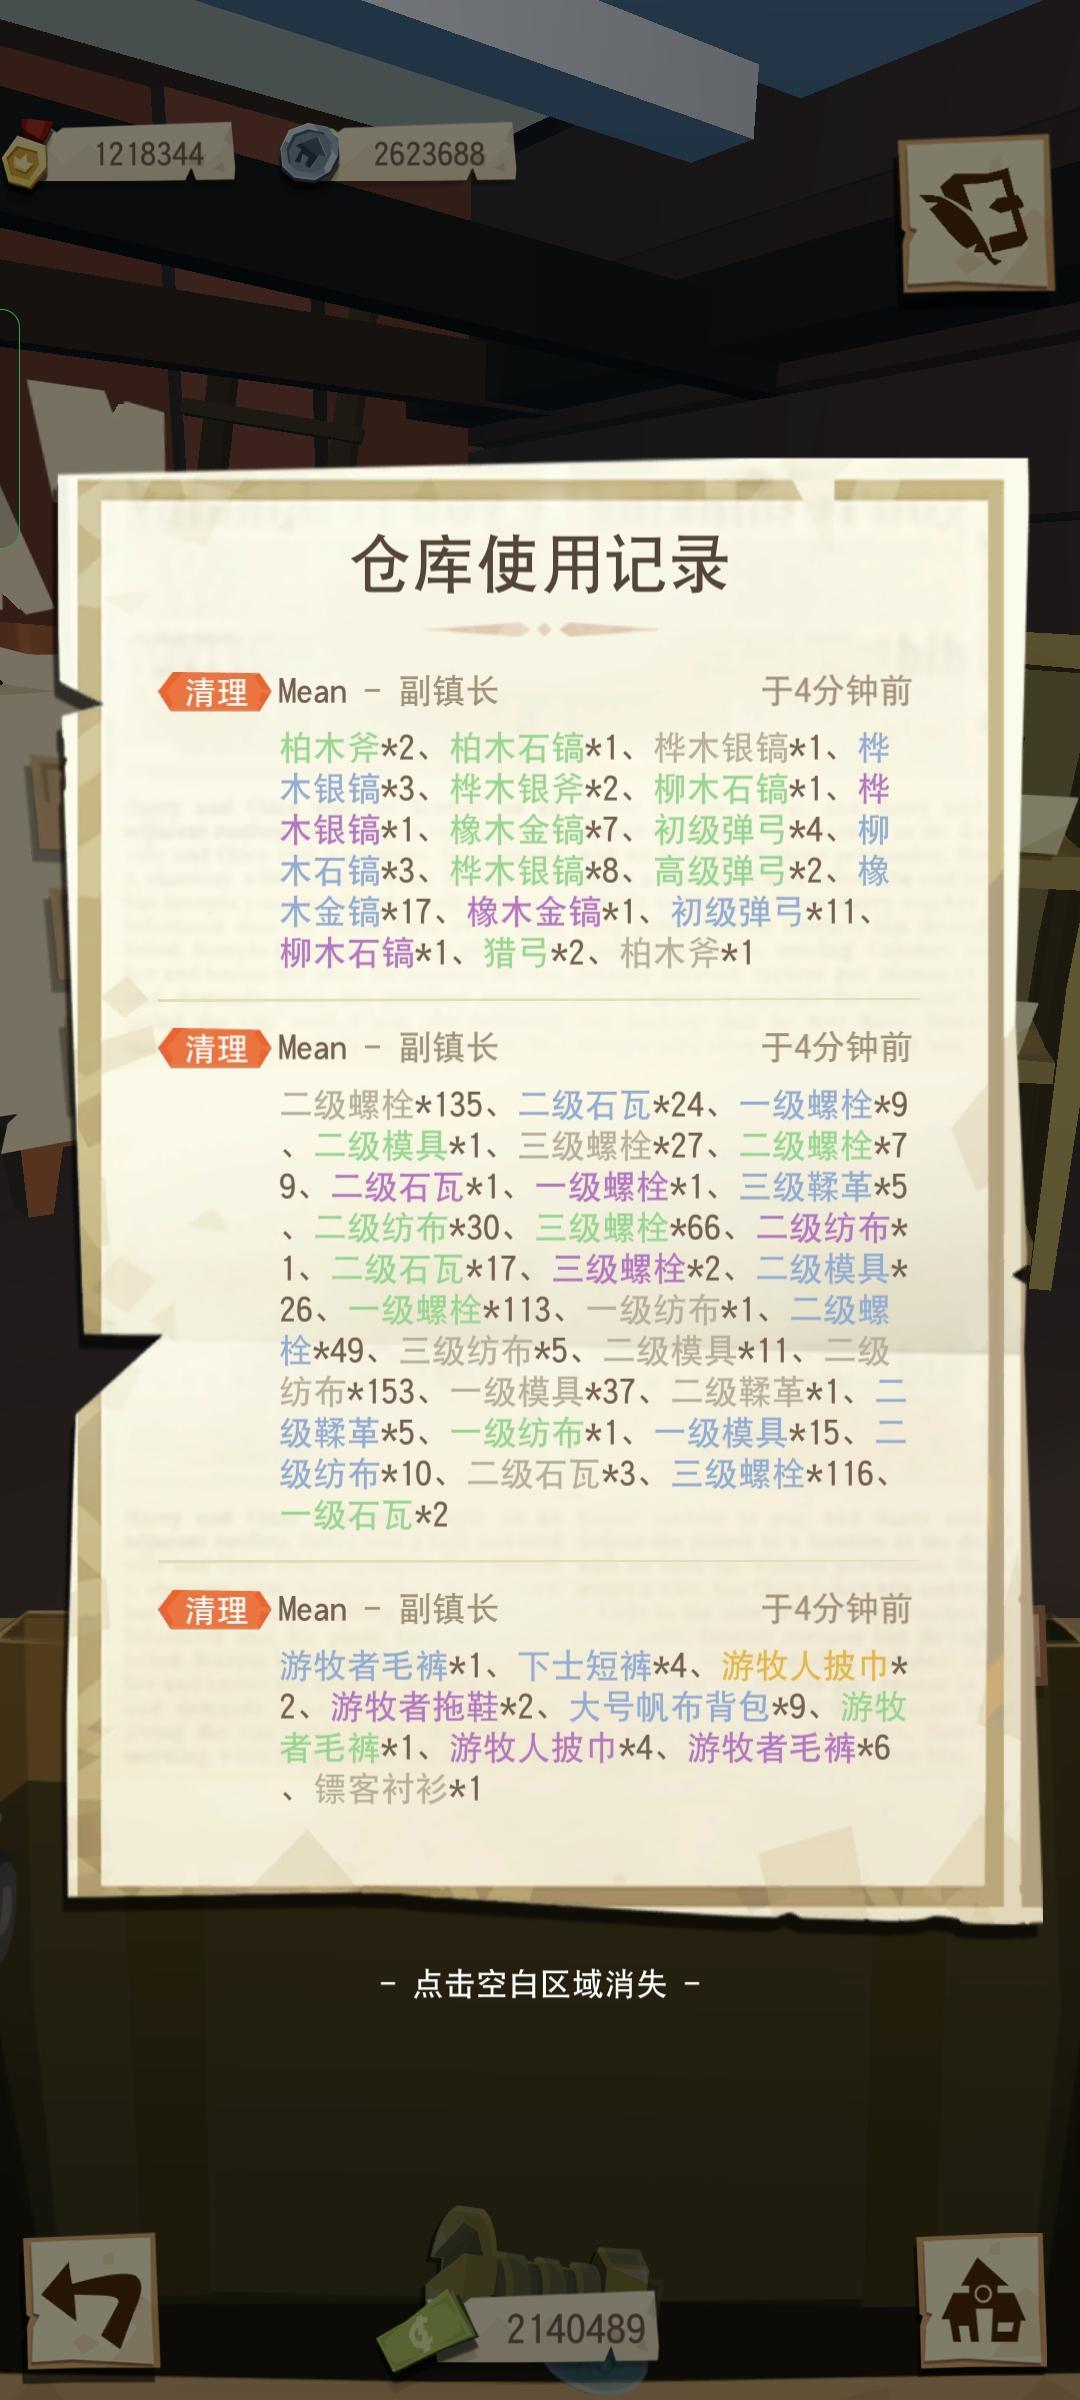 1218344
2623688
仓库使用记录
清理 Mean - 副镇长 于4分钟前
柏木斧*2、柏木石镐*1、桦木银镐*1、桦
木银镐*3、桦木银斧*2、柳木石镐*1、桦
木银镐*1、橡木金镐*7、初级弹弓*4、柳
木石镐*3、桦木银镐*8、高级弹弓*2、橡
木金镐*17、橡木金镐*1、初级弹弓*11、
柳木石镐*1、猎弓*2、柏木斧*1
清理 Mean - 副镇长 于4分钟前
二级螺栓*135、二级石瓦*24、一级螺栓*9
、二级模具*1、三级螺栓*27、二级螺栓*7
9、二级石瓦*1、一级螺栓*1、三级鞣革*5
、二级纺布*30、三级螺栓*66、二级纺布*
1、二级石瓦*17、三级螺栓*2、二级模具*
26、一级螺栓*113、一级纺布*1、二级螺
栓*49、三级纺布*5、二级模具*11、二级
纺布*153、一级模具*37、二级鞣革*1、二
级鞣革*5、一级纺布*1、一级模具*15、二
级纺布*10、二级石瓦*3、三级螺栓*116、
一级石瓦*2
清理 Mean - 副镇长 于4分钟前
游牧者毛裤*1、下士短裤*4、游牧人披巾*
2、游牧者拖鞋*2、大号帆布背包*9、游牧
者毛裤*1、游牧人披巾*4、游牧者毛裤*6
、镖客衬衫*1
- 点击空白区域消失 -
2140489